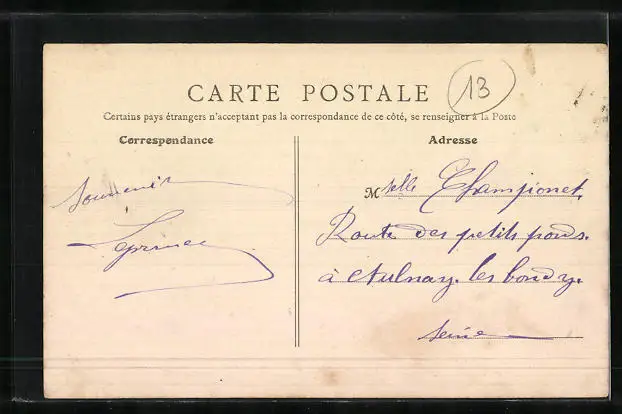 CARTE POSTALE
13
Certains pays étrangers n'acceptant pas la correspondance de ce côté, se renseigner à la Poste
Correspondance
Souvenir
Adresse
Mselle Championet
Route des petits ponds.
à Aulnay. les bondy.
Seine